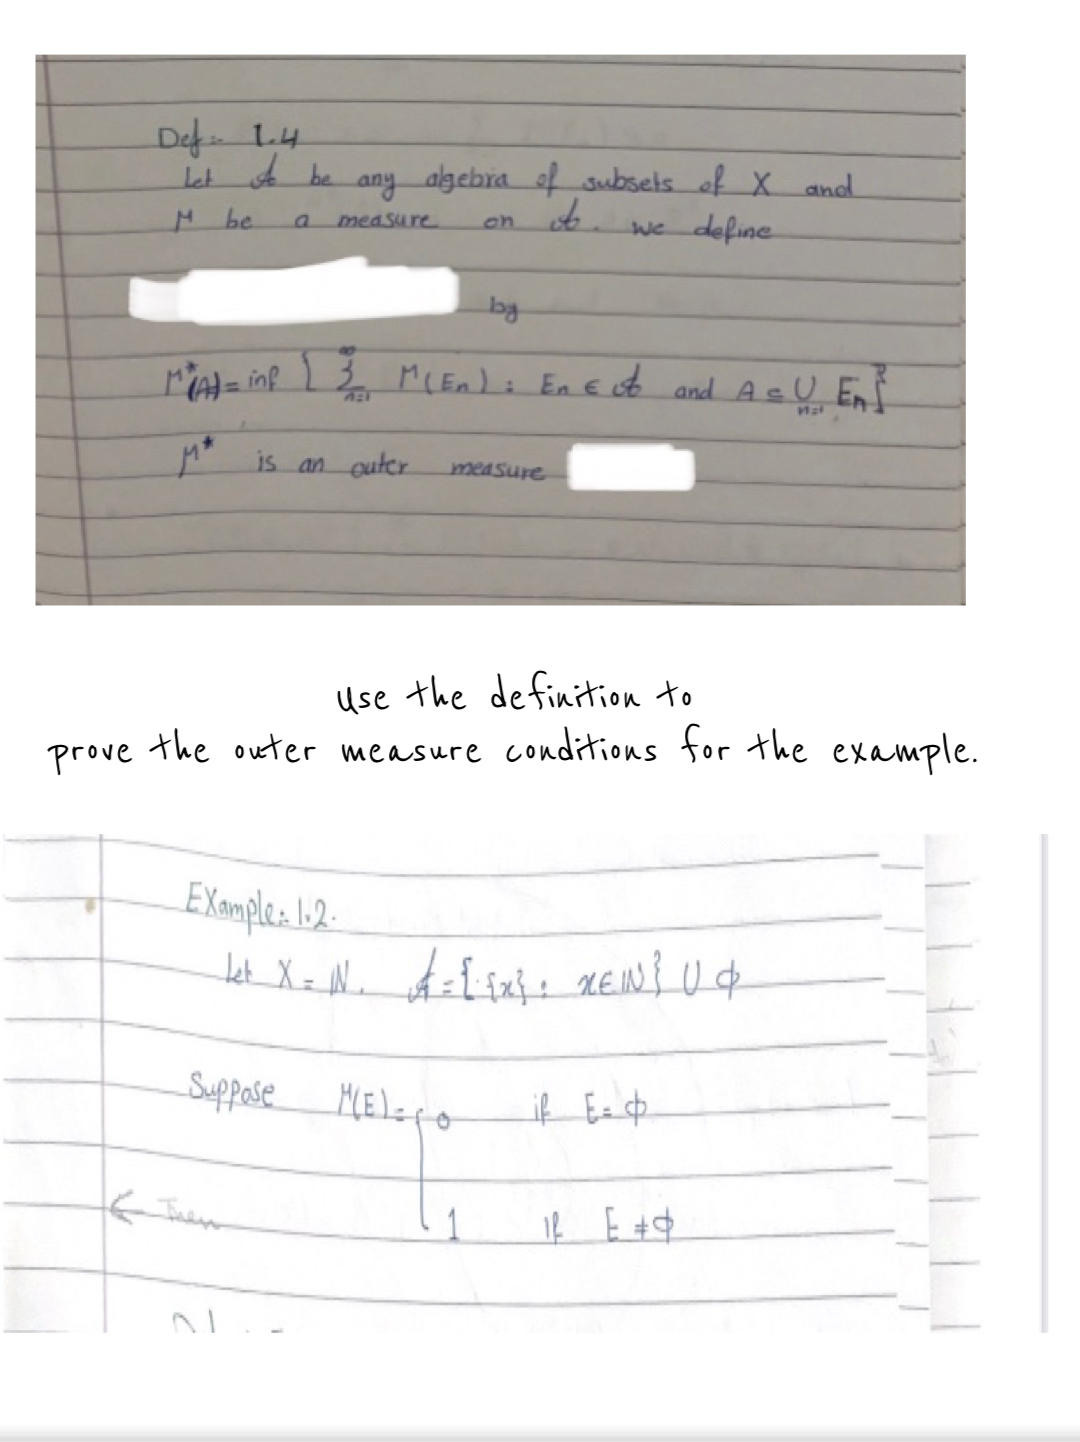 Def:- 1.4
Let A be any algebra of subsets of X and
μ be a measure on A. we define
by
μ*(A) = inf { ∑ₙ₌₁^∞ μ(En) : En ∈ A and A ⊆ ⋃ₙ₌₁ En }
μ* is an outer measure
use the definition to
prove the outer measure conditions for the example.
EXample:- 1.2.
Let X = ℕ. A = { {x} : x ∈ ℕ } ∪ ϕ
Suppose μ(E) = { 0 if E = ϕ
← Then 1 if E ≠ ϕ